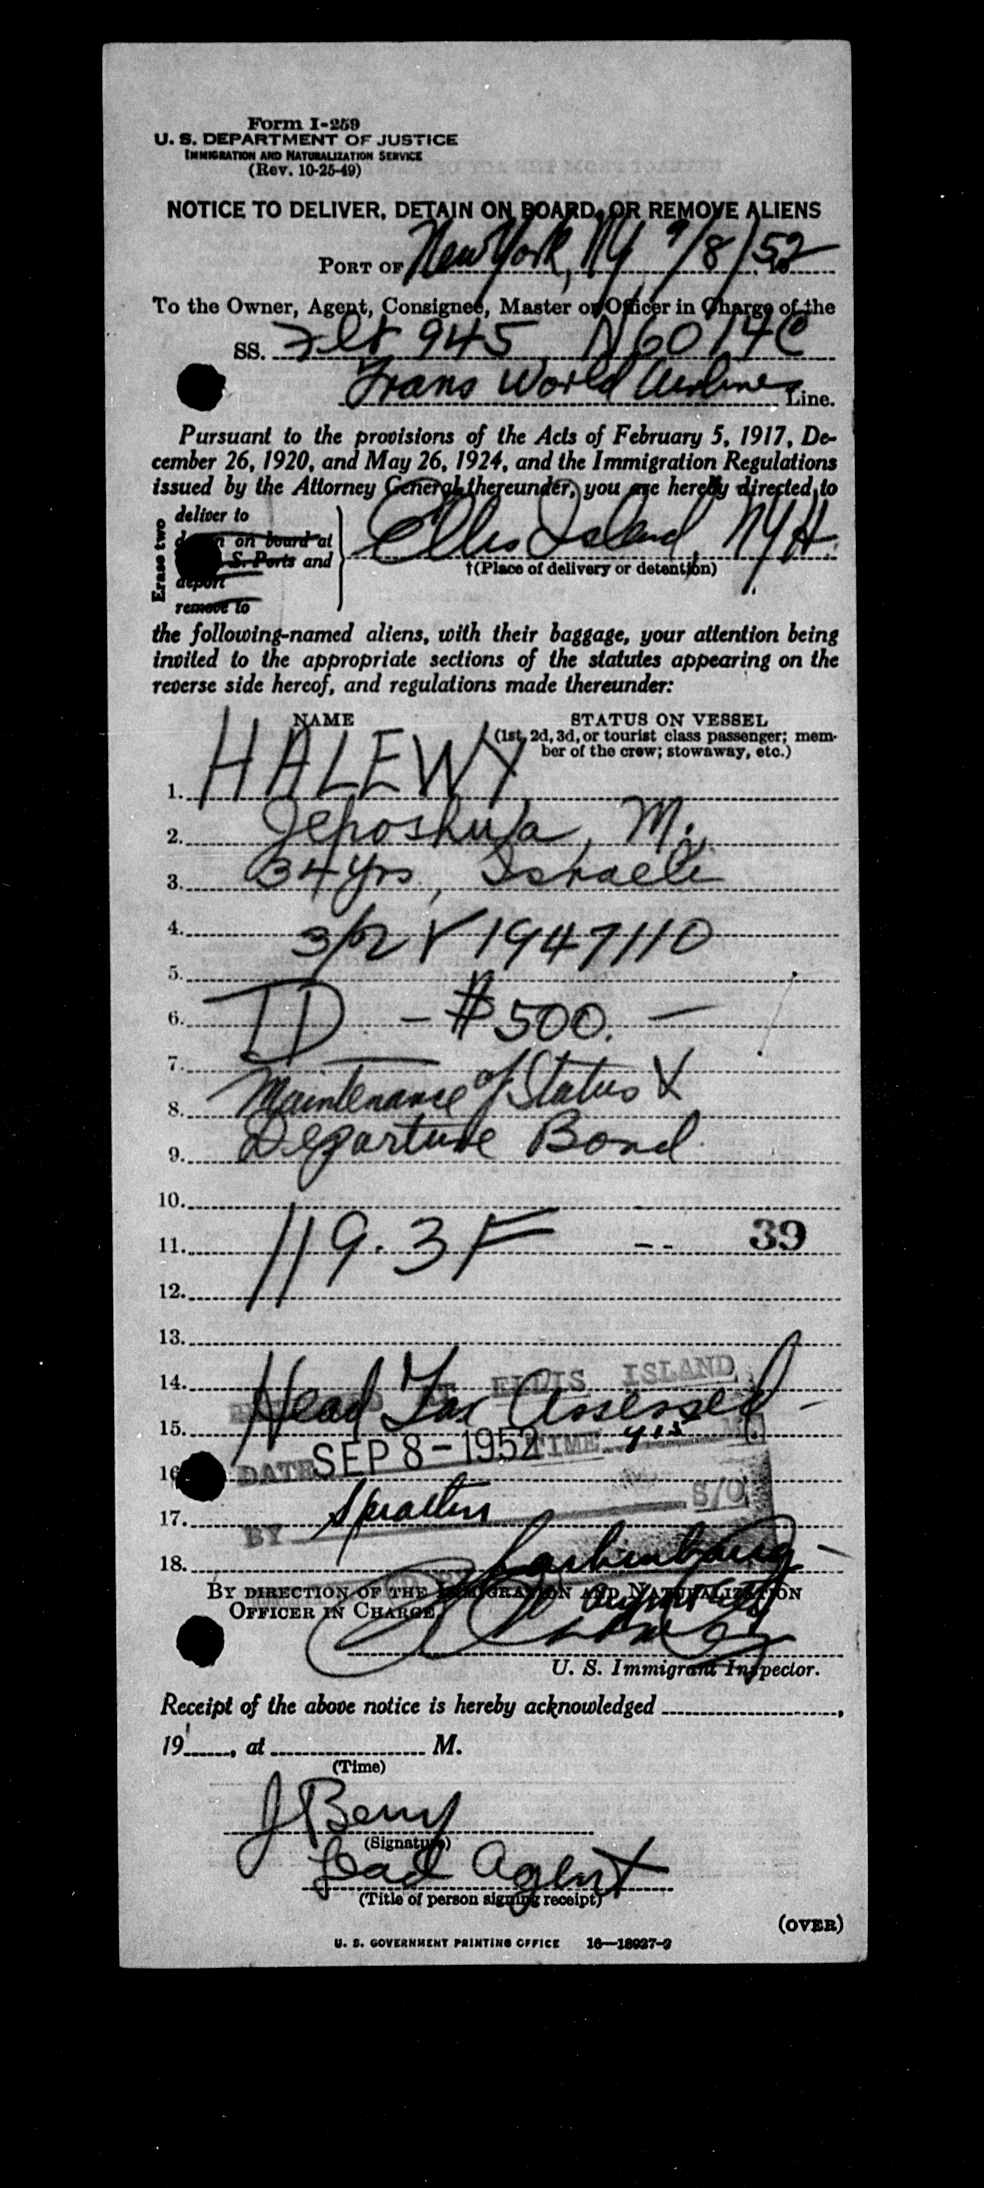 Form I-259
U. S. DEPARTMENT OF JUSTICE
IMMIGRATION AND NATURALIZATION SERVICE
(Rev. 10-25-49)
NOTICE TO DELIVER, DETAIN ON BOARD, OR REMOVE ALIENS
PORT OF New York, NY 9/8/52
To the Owner, Agent, Consignee, Master or Officer in Charge of the
SS. Flt 945 N6014C
Trans World Airlines Line.
Pursuant to the provisions of the Acts of February 5, 1917, De-
cember 26, 1920, and May 26, 1924, and the Immigration Regulations
issued by the Attorney General thereunder, you are hereby directed to
Erase two
deliver to
on board at
S. Ports and
deport
remove to
Ellis Island, NYH.
†(Place of delivery or detention)
the following-named aliens, with their baggage, your attention being
invited to the appropriate sections of the statutes appearing on the
reverse side hereof, and regulations made thereunder:
NAME STATUS ON VESSEL
(1st, 2d, 3d, or tourist class passenger; mem-
ber of the crew; stowaway, etc.)
1. HALEWY
2. Jehoshula, M.
3. 34 yrs, Israeli
4. 3/2 V 1947110
5.
6. TD - $500. -
7.
8. Maintenance of Status &
9. Departure Bond
10.
11. 119.3F -- 39
12.
13.
14. Head Tax Assessed -
ELLIS ISLAND
15.
DATE SEP 8-1952 TIME M.
16
S/O
17.
BY
18.
BY DIRECTION OF THE IMMIGRATION AND NATURALIZATION
OFFICER IN CHARGE
U. S. Immigrant Inspector.
Receipt of the above notice is hereby acknowledged ,
19 , at M.
(Time)
J Berry
(Signature)
Lead Agent
(Title of person signing receipt)
(OVER)
U. S. GOVERNMENT PRINTING OFFICE 16—18927-2